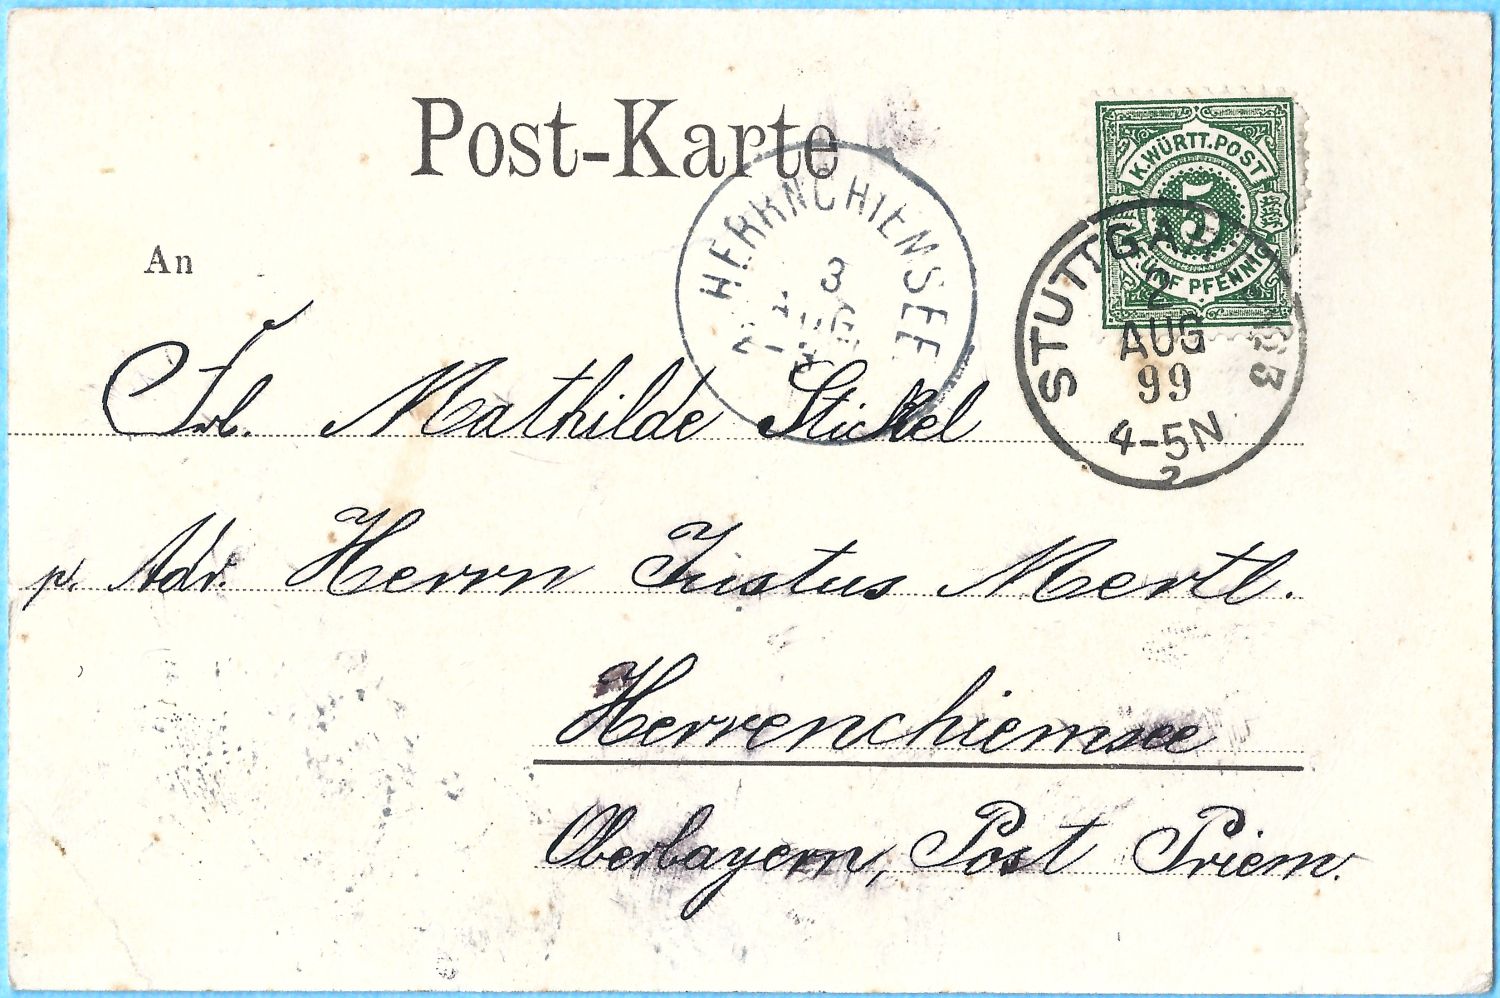 Post-Karte
K. WÜRTT. POST
5
FÜNF PFENNIG
HERRNCHIEMSEE
3
AUG
STUTTGART
2
AUG
99
4-5N
2
An
Frl. Mathilde Stickel
p. Adr. Herrn Justus Mertl.
Herrenchiemsee
Oberbayern, Post Priem.